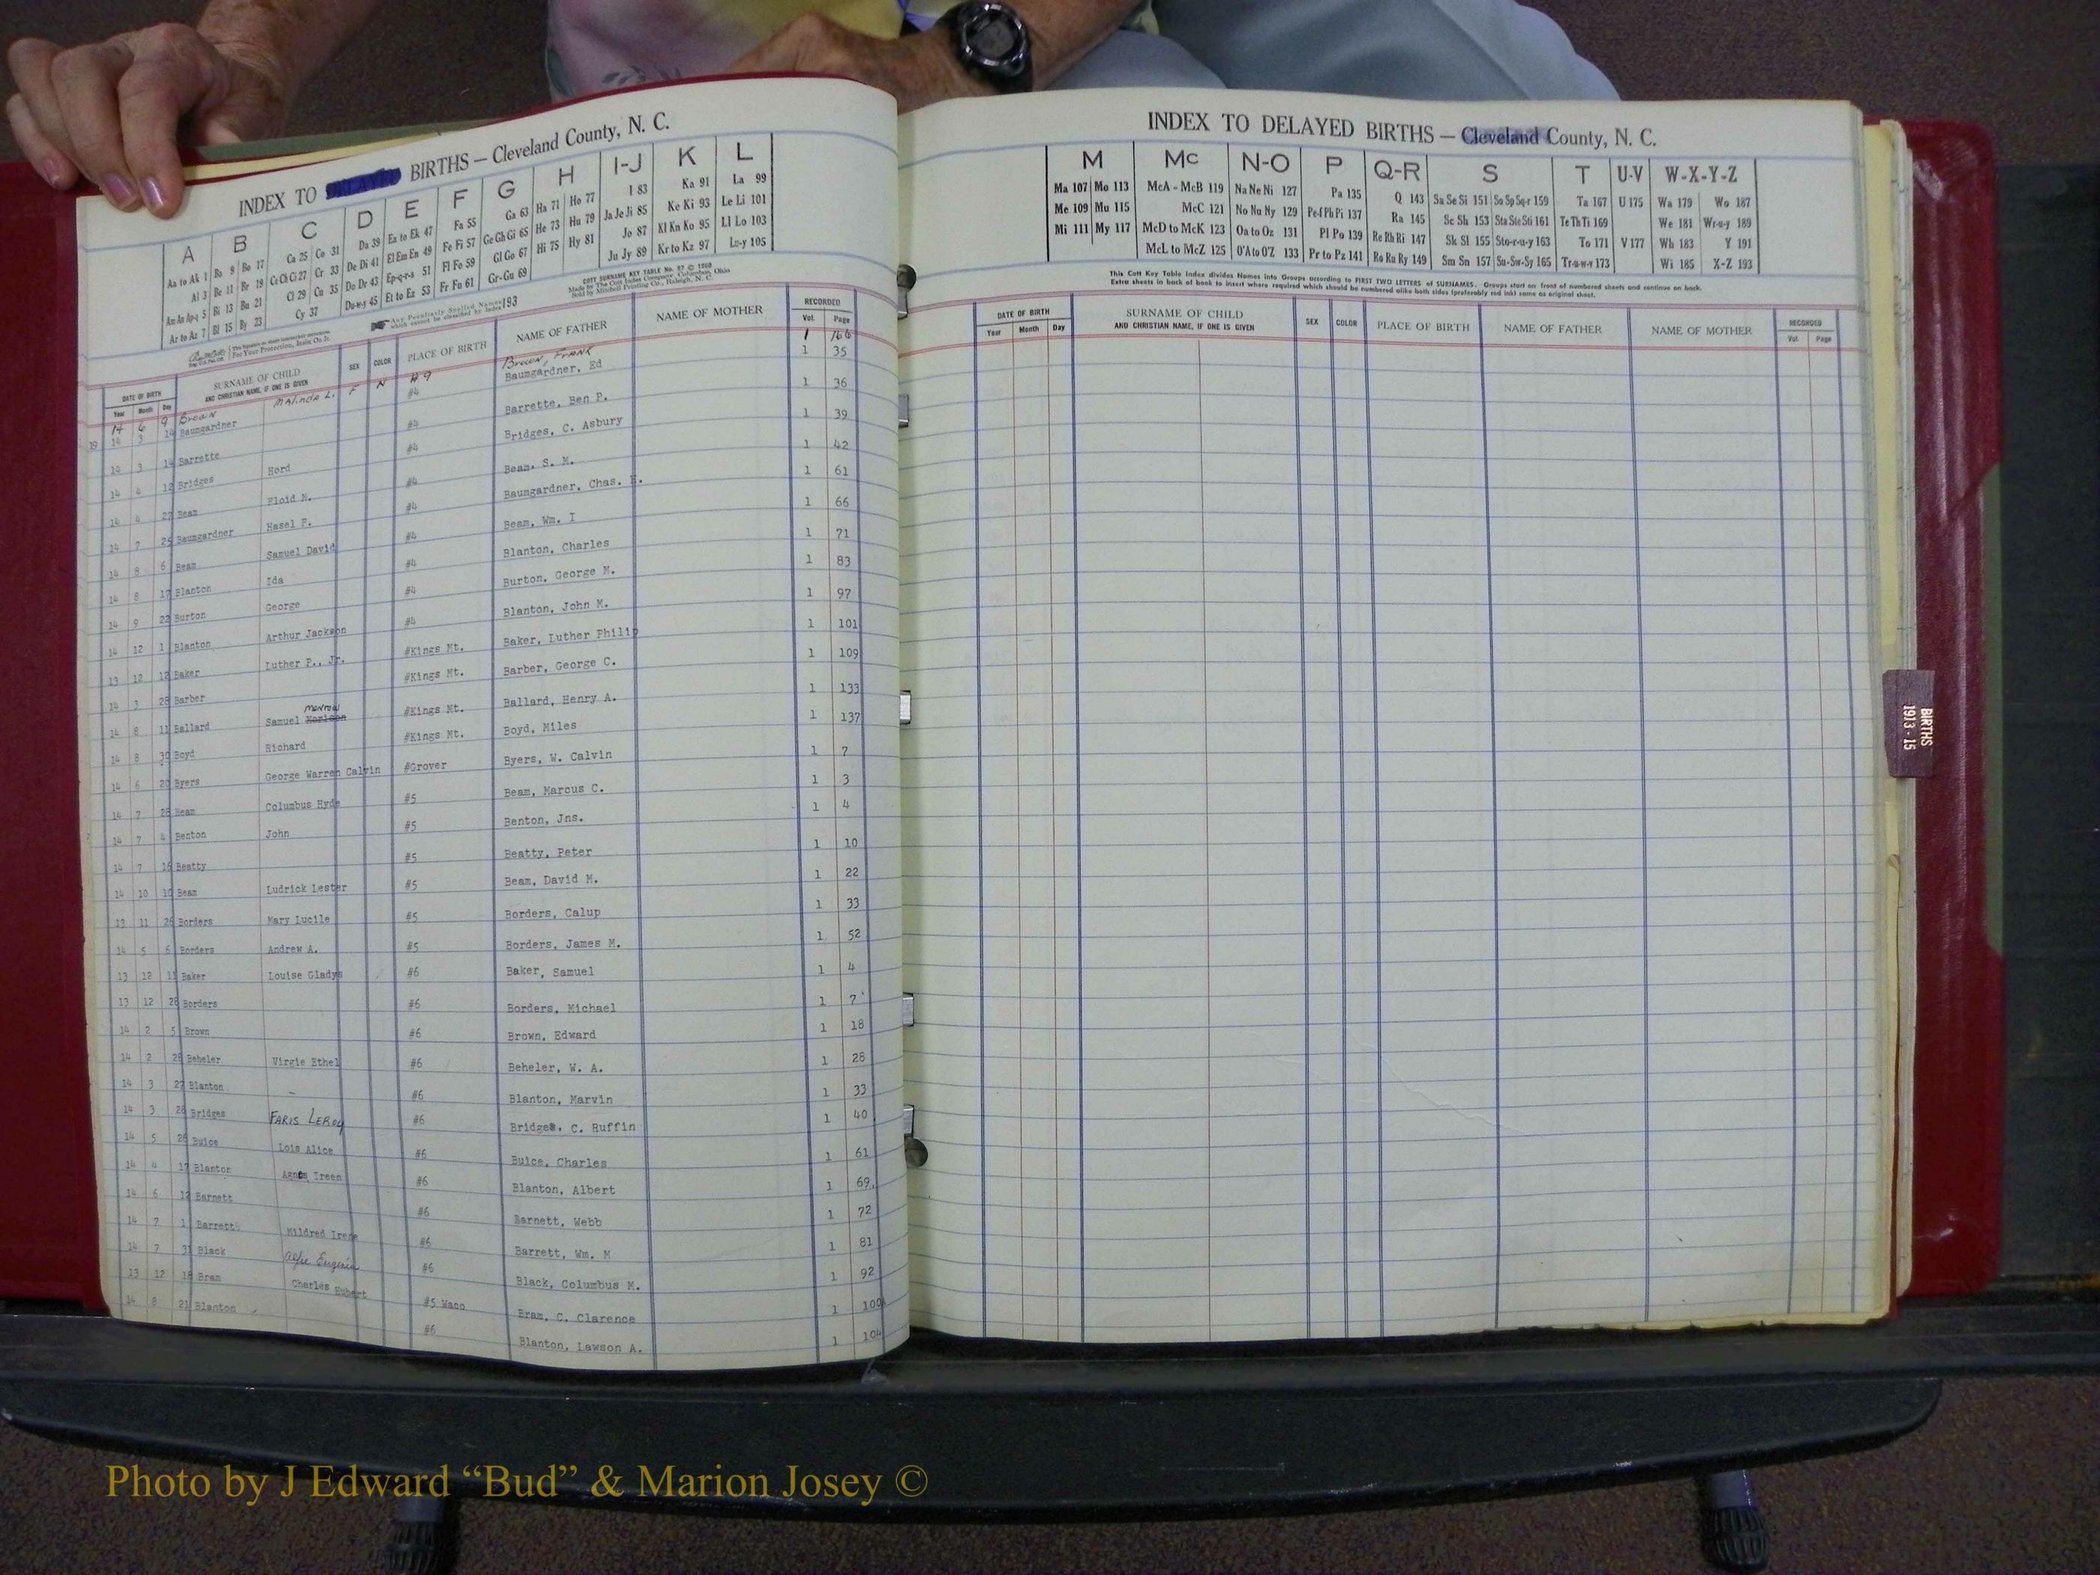 INDEX TO DELAYED BIRTHS — Cleveland County, N. C.
A B C D E F G H I-J K L
Aa to Ak 1 Ba 9 Bo 17 Ca 25 Co 31 Da 39 Ea to Ek 47 Fa 55 Ga 63 Ha 71 Ho 77 I 83 Ka 91 La 99
Al 3 Be 11 Br 19 Ce Ch Ci 27 Cr 33 De Di 41 El Em En 49 Fe Fi 57 Ge Gh Gi 65 He 73 Hu 79 Ja Je Ji 85 Ke Ki 93 Le Li 101
Am An Ap-q 5 Bi 13 Bu 21 Cl 29 Cu 35 Do Dr 43 Ep-q-r-s 51 Fl Fo 59 Gl Go 67 Hi 75 Hy 81 Jo 87 Kl Kn Ko 95 Ll Lo 103
Ar to Az 7 Bl 15 By 23 Cy 37 Du-w-y 45 Et to Ez 53 Fr Fu 61 Gr-Gu 69 Ju Jy 89 Kr to Kz 97 Lu-y 105
Any Peculiarly Spelled Names which cannot be classified by Index 193
COTT SURNAME KEY TABLE No. 97 ©
Made by The Cott Index Company, Columbus, Ohio
Sold by Mitchell Printing Co., Raleigh, N. C.
For Your Protection, Insist On It.
DATE OF BIRTH SURNAME OF CHILD AND CHRISTIAN NAME, IF ONE IS GIVEN SEX COLOR PLACE OF BIRTH NAME OF FATHER NAME OF MOTHER RECORDED
Year Month Day Vol. Page
14 6 9 Brown Malinda L. F N #9 Brown, Frank 1 166
19 14 3 14 Baumgardner #4 Baumgardner, Ed 1 35
14 3 14 Barrette #4 Barrette, Ben P. 1 36
14 4 12 Bridges Hord #4 Bridges, C. Asbury 1 39
14 4 27 Beam Floid M. #4 Beam, S. M. 1 42
14 7 25 Baumgardner Hasel F. #4 Baumgardner, Chas. H. 1 61
14 8 6 Beam Samuel David #4 Beam, Wm. I 1 66
14 8 17 Blanton Ida #4 Blanton, Charles 1 71
14 9 22 Burton George #4 Burton, George M. 1 83
14 12 1 Blanton Arthur Jackson #4 Blanton, John M. 1 97
13 12 12 Baker Luther P., Jr. #Kings Mt. Baker, Luther Philip 1 101
14 3 28 Barber #Kings Mt. Barber, George C. 1 109
14 8 11 Ballard Samuel Morison Monrow #Kings Mt. Ballard, Henry A. 1 133
14 8 30 Boyd Richard #Kings Mt. Boyd, Miles 1 137
14 6 20 Byers George Warren Calvin #Grover Byers, W. Calvin 1 7
14 7 28 Beam Columbus Hyde #5 Beam, Marcus C. 1 3
14 7 4 Benton John #5 Benton, Jns. 1 4
14 7 16 Beatty #5 Beatty, Peter 1 10
14 10 10 Beam Ludrick Lester #5 Beam, David M. 1 22
13 11 26 Borders Mary Lucile #5 Borders, Calup 1 33
14 5 6 Borders Andrew A. #5 Borders, James M. 1 52
13 12 11 Baker Louise Gladys #6 Baker, Samuel 1 4
13 12 28 Borders #6 Borders, Michael 1 7
14 2 5 Brown #6 Brown, Edward 1 18
14 2 28 Beheler Virgie Ethel #6 Beheler, W. A. 1 28
14 3 27 Blanton #6 Blanton, Marvin 1 33
14 3 28 Bridges Faris Leroy #6 Bridges, C. Ruffin 1 40
14 5 26 Buice Lois Alice #6 Buice, Charles 1 61
14 4 17 Blanton Ireen #6 Blanton, Albert 1 69
14 6 12 Barnett #6 Barnett, Webb 1 72
14 7 1 Barrett Mildred Irene #6 Barrett, Wm. M 1 81
14 7 31 Black Eugenia #6 Black, Columbus M. 1 92
13 12 18 Bram Charles Hubert #5 Waco Bram, C. Clarence 1 100
14 8 21 Blanton #6 Blanton, Lawson A. 1 104
INDEX TO DELAYED BIRTHS — Cleveland County, N. C.
M Mc N-O P Q-R S T U-V W-X-Y-Z
Ma 107 Mo 113 McA - McB 119 Na Ne Ni 127 Pa 135 Q 143 Sa Se Si 151 So Sp Sq-r 159 Ta 167 U 175 Wa 179 Wo 187
Me 109 Mu 115 McC 121 No Nu Ny 129 Pe-f Ph Pi 137 Ra 145 Sc Sh 153 Sta Ste Sti 161 Te Th Ti 169 We 181 Wr-u-y 189
Mi 111 My 117 McD to McK 123 Oa to Oz 131 Pl Po 139 Re Rh Ri 147 Sk Sl 155 Sto-r-u-y 163 To 171 V 177 Wh 183 Y 191
McL to McZ 125 O'A to O'Z 133 Pr to Pz 141 Ro Ru Ry 149 Sm Sn 157 Su-Sw-Sy 165 Tr-u-w-y 173 Wi 185 X-Z 193
This Cott Key Table Index divides Names into Groups according to FIRST TWO LETTERS of SURNAMES. Groups start on front of numbered sheets and continue on back.
Extra sheets in back of book to insert where required which should be numbered alike both sides (preferably red ink) same as original sheet.
DATE OF BIRTH SURNAME OF CHILD AND CHRISTIAN NAME, IF ONE IS GIVEN SEX COLOR PLACE OF BIRTH NAME OF FATHER NAME OF MOTHER RECORDED
Year Month Day Vol. Page
BIRTHS
1913-15
Photo by J Edward “Bud” & Marion Josey ©